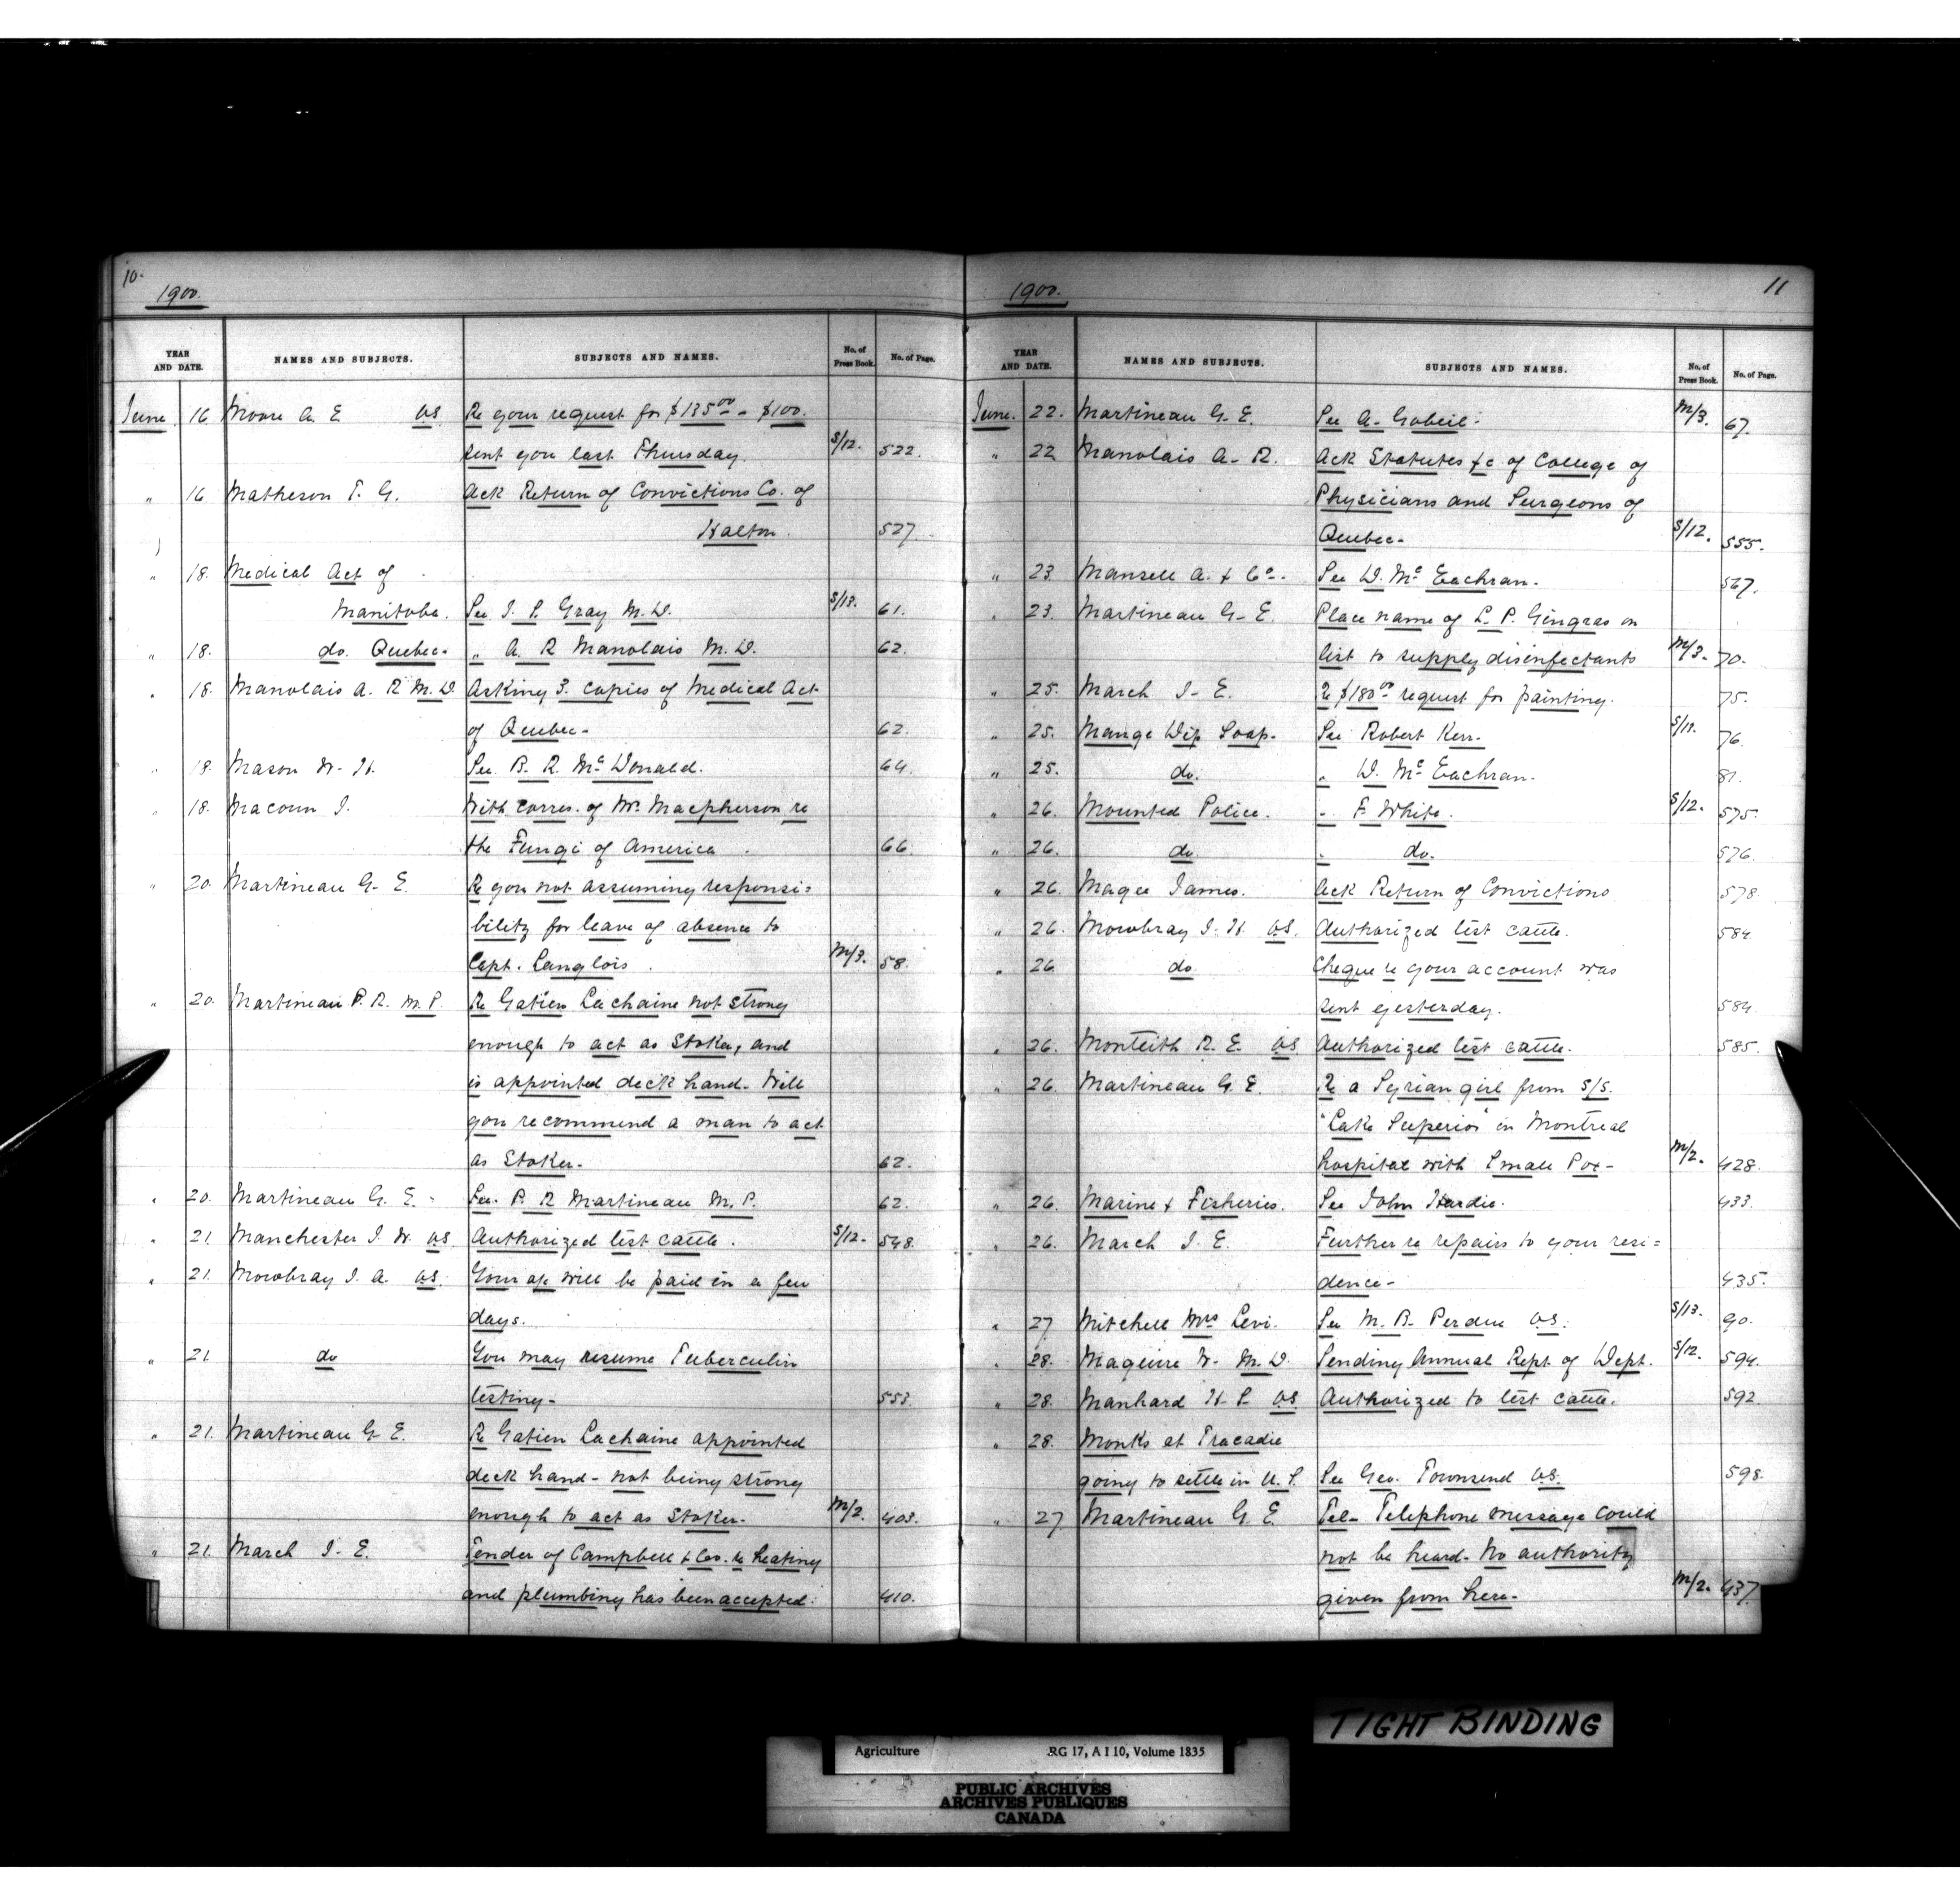 10.
1900.
YEAR AND DATE. NAMES AND SUBJECTS. SUBJECTS AND NAMES. No. of Press Book. No. of Page.
June 16 Moore A. E. VS Re your request for $135.00 - $100.
sent you last Thursday. S/12. 522.
" 16 Matheson T. G. Ack Return of Convictions Co. of
Halton. 527.
" 18. Medical Act of
Manitoba. See J. P. Gray M.D. S/13. 61.
" 18. do. Quebec. " A. R Manolais M.D. 62.
" 18. Manolais A. R M.D. Asking 3. copies of Medical Act
of Quebec- 62.
" 18. Mason W. H. See B. R. McDonald. 64.
" 18. Macoun J. With corres. of Mr. Macpherson re
the Fungi of America. 66.
" 20. Martineau G. E. Re you not assuming responsi=
bility for leave of absence to
Capt. Langlois. M/3. 58.
" 20. Martineau P. R. M.P. Re Gatien Lachaine not strong
enough to act as Stoker, and
is appointed deck hand. Will
you recommend a man to act
as Stoker. 62.
" 20. Martineau G. E. See P. R Martineau M.P. 62.
" 21. Manchester J. W. VS. Authorized test cattle. S/12. 548.
" 21. Mowbray J. A. VS. Your a/c will be paid in a few
days.
" 21. do You may resume Tuberculin
testing. 553.
" 21. Martineau G E. Re Gatien Lachaine appointed
deck hand - not being strong
enough to act as Stoker. M/2. 403.
" 21. March J. E. Tender of Campbell & Co. re heating
and plumbing has been accepted. 410.
11
1900.
YEAR AND DATE. NAMES AND SUBJECTS. SUBJECTS AND NAMES. No. of Press Book. No. of Page.
June. 22. Martineau G. E. See A. Gobeil. M/3. 67.
" 22 Manolais A. R. Ack Statutes &c of College of
Physicians and Surgeons of
Quebec- S/12. 555.
" 23 Mansell A. & Co. See D. McEachran. 567.
" 23. Martineau G. E. Place name of L. P. Gingras on
list to supply disinfectants M/3. 70.
" 25. March J. E. Re $180.00 request for painting. 75.
" 25. Mange Dip Soap. See Robert Kerr. S/13. 76.
" 25. do. " D. McEachran. 81.
" 26. Mounted Police. " F White. S/12. 575.
" 26. do " do. 576.
" 26. Magee James. Ack Return of Convictions 578.
" 26. Mowbray J. H. VS. Authorized test cattle. 584.
" 26 do. Cheque re your account was
sent yesterday. 584.
" 26. Monteith R. E. VS Authorized test cattle. 585.
" 26. Martineau G. E Re a Syrian girl from S/S.
"Lake Superior" in Montreal
hospital with Small Pox- M/2. 428.
" 26. Marine & Fisheries. See John Hardie. 433.
" 26. March J. E. Further re repairs to your resi=
dence- 435.
" 27 Mitchell Mrs Levi. See M. B. Perdue VS. S/13. 90.
" 28. Maguire W. M.D. Sending Annual Rept. of Dept. S/12. 594.
" 28. Manhard H. S. VS Authorized to test cattle. 592
" 28. Monks at Tracadie
going to settle in U.S. See Geo. Townsend VS. 598.
" 27. Martineau G. E. Tel- Telephone message could
not be heard- No authority
given from here- M/2. 437
TIGHT BINDING
Agriculture RG 17, A I 10, Volume 1835
PUBLIC ARCHIVES
ARCHIVES PUBLIQUES
CANADA